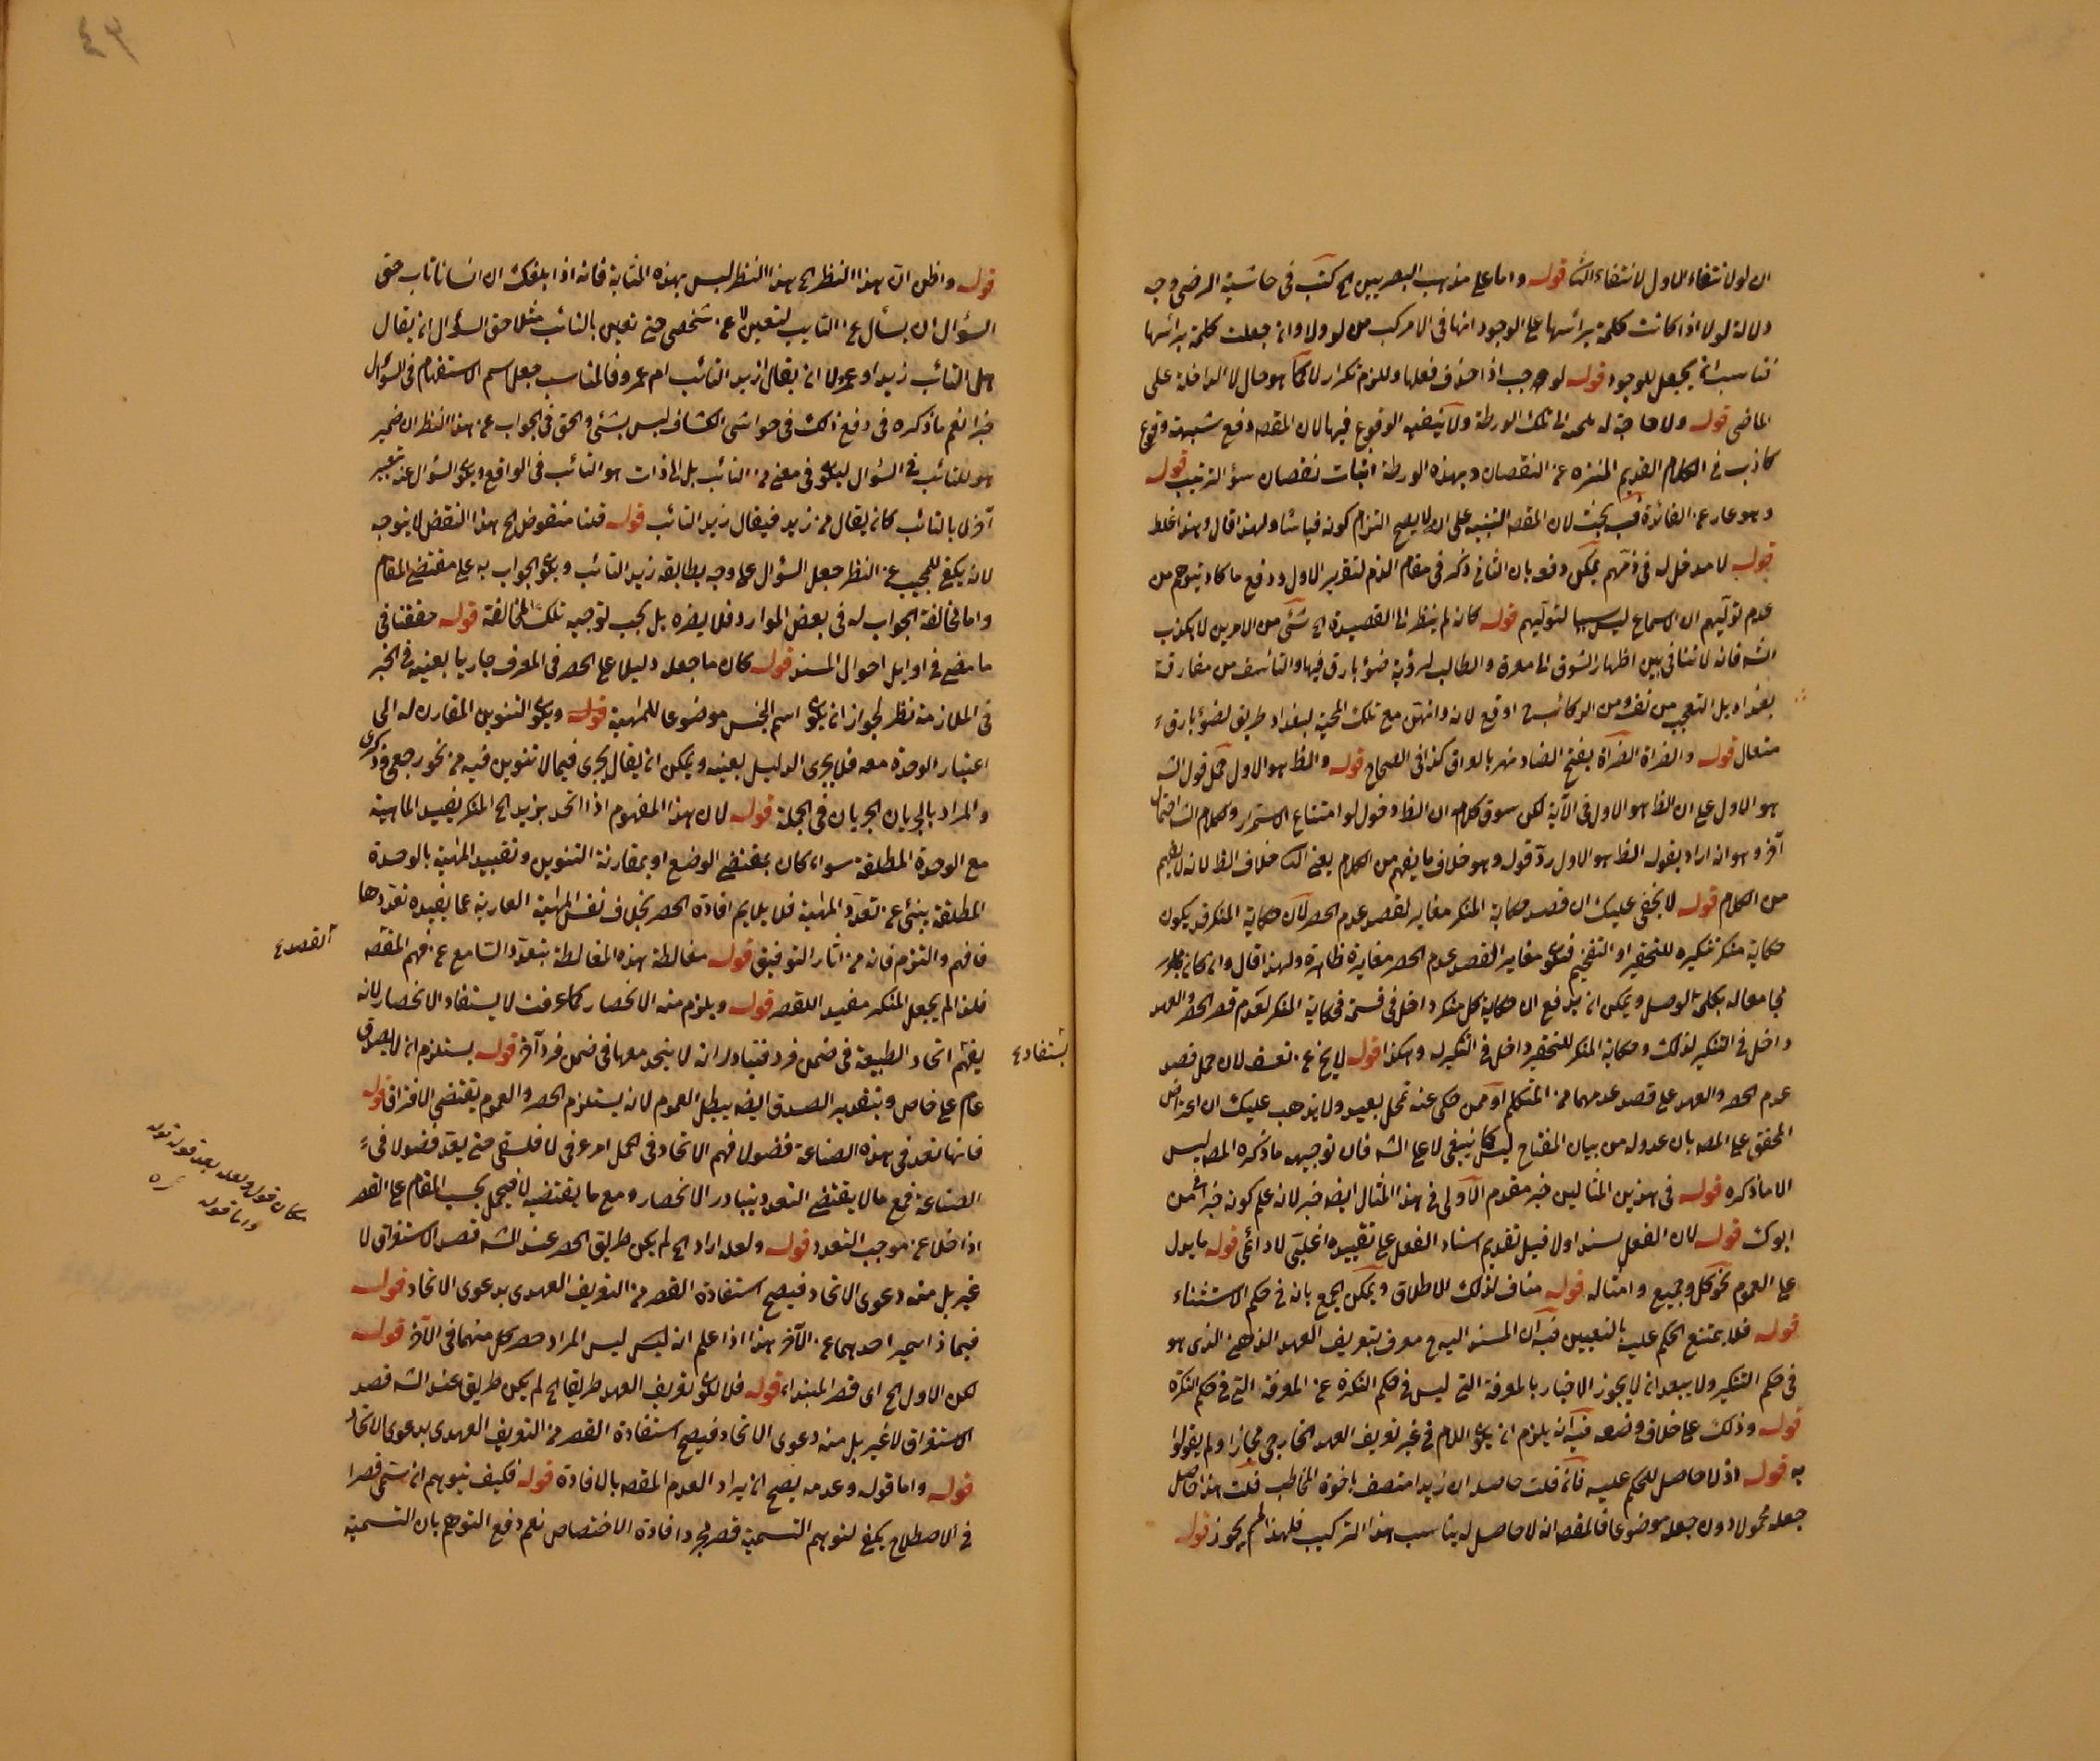 ان لو لانتفاء الاول لانتفاء الثا قوله واما على مذهب البصريين الخ كتب فى حاشية الرضى وجه
دلالة لولا اذا كانت كلمة برأسها على الوجود انها فى الامر كب من لو ولا وان جعلت كلمة برأسها
تناسب ان يجعل للوجود قوله لوجب اذا حذف فعلها وللزم تكرار لا كما هو حال لا الداخلة على
الماضى قوله ولا حاجة له الى تلك الورطة ولا الوقوع فيها لان المقصه دفع شبهة وقوع
كاذب فى الكلام القديم المنزه عن النقصان وبهذه الورطة اثبات نقصان سؤ الترتيب قوله
وهو عار عن الفائدة فيه بحث لان المقصه التنبيه على انه لا يصح التزام كونه قياسا ولهذا قال وهذا غلط
قوله لا مدخل له فى ذمهم يمكن دفعه بان الثانى ذكر فى مقام الذم لتقرير الاول ودفع ما كاد يتوهم من
عدم توليهم ان الاسماع ليس سببا لتوليهم قوله كان لم ينظر الى القصيدة الخ شئ من الامرين لا يكذب
الشه فانه لا تنافى بين اظهار الشوق الى معرة والطالب لرؤية ضوء بارق فيها والتأسف من مفارقة
بغداد بل التعجب من نفسه ومن الركائب ح اوقع لانه وانهن مع تلك المحبة لبغداد طريق لضوء بارق
متعال قوله والفراة الفراة بفتح الضاد نهر بالعراق كذا فى الصحاح قوله والظ هو الاول حمل قول الشه
هو الاول على ان الظ هو الاول فى الآية لكن سوق كلام ان الظ دخول لو امتناع الاستمرار وكلام الشه احتمال
آخر وهو انه اراد بقوله الظ هو الاول رد قوله وهو خلاف ما يفهم من الكلام يعنى الثا خلاف الظ لانه لا يفهم
من الكلام قوله لا يخفى عليك ان قصد حكاية المنكر مغاير لقصد عدم الحصر لان حكاية المنكر قد يكون
حكاية منكر تنكيره للتحقير او التفخيم فيكون مغاير القصد عدم الحصر مغايرة ظاهرة ولهذا قال وان كان
مجامعا له بكلمة الوصل ويمكن ان يدفع ان حكاية كل منكر داخل فى قسمة فحكاية المنكر لعدم قصد الحصر والعهد
داخل فى التنكير لذلك وحكاية المنكر للتحقير داخل فى التنكير له وهكذا قوله لا يخ عن تعسف لان حمل قصد
عدم الحصر والعهد على قصد عدمهما من المتكلم او ممن حكى عنه تمحل بعيد ولا يذهب عليك ان اعتراض
المحقق على المصه بان عدوله من بيان المفتاح ليس كما ينبغى لا على الشه فان توجيه ما ذكره المصه ليس
الا ما ذكره قوله فى هذين المثالين خبر مقدم الاولى فى هذا المثال ايضه خبر لانه علم كونه خبرا فى من
ابوك قوله لان الفعل مسند اولا قيل تقديم اسناد الفعل على تقييده اغلبى لا دائمى قوله ما يدل
على العموم نحو كل وجميع وامثاله قوله مناف لذلك الاطلاق ويمكن الجمع بانه فى حكم الاستثناء
قوله فلا يمتنع الحكم عليه بالتعيين فيه ان المسند اليه ح معرف بتعريف العهد الذهنى الذى هو
فى حكم التنكير ولا يبعد ان لا يجوز الاخبار بالمعرفة التى ليس فى حكم النكرة عن المعرفة التى فى حكم النكرة
قوله وذلك على خلاف وضعه فيه انه يلزم ان يكون اللام فى غير تعريف العهد الخارجى مجازا ولم يقولوا
به قوله اذ لا حاصل للحكم عليه فان قلت حاصله ان زيدا متصف باخوة المخاطب قلت هذا حاصل
جعله محمولا دون جعله موضوعا فالمقصه انه لا حاصل له يناسب هذا التركيب فلهذا لم يجوز قوله
٤٣
قوله واظن ان هذا النظر الخ هذا النظر ليس بهذه المثابة فانه اذا بلغك ان انسانا تاب حق
السؤال ان يسأل عن التايب لتعين لا عن شخص حتى تعين بالتائب مثلا حق السؤال ان يقال
هل التائب زيد او عمرو لا ان يقال ازيد التائب ام عمرو فالمناسب جعل اسم الاستفهام فى السؤال
خبرا نعم ما ذكره فى دفع ذلك فى حواشى الكشاف ليس بشئ والحق فى الجواب عن هذا النظر ان ضمير
هو للتائب فى السؤال ليكون فى معنى من التائب بل الى ذات هو التائب فى الواقع ويكون السؤال عنه تعبير
آخر لا بالتائب كان يقال من زيد فيقال زيد التائب قوله قلنا منقوض الخ هذا النقض لا يتوجه
لانه يكفى للمجيب عن النظر جعل السؤال على وجه يطابقه زيد التائب ويكون الجواب به على مقتضى المقام
واما مخالفة الجواب له فى بعض الموارد فلا يضره بل يجب توجيه تلك المخالفة قوله حققنا فى
ما مضى فى اوايل احوال المسند قوله كان ما جعله دليلا على الحصر فى المعرف جاريا بعينه فى الخبر
فى الملازمة نظر لجواز ان يكون اسم الجنس موضوعا للماهية قوله ويكون التنوين المقارن له الى
اعتبار الوحدة معه فلا يجرى الدليل بعينه ويمكن ان يقال يجرى فيما لا تنوين فيه من نحو رجعى وذكرى
والمراد بالجريان الجريان فى الجملة قوله لان هذا المفهوم اذا اتحد بزيد الخ المنكر يفيد الماهية
مع الوحدة المطلقة سواء كان بمقتضى الوضع او بمقارنة التنوين وتقييد الماهية بالوحدة
المطلقة ينبئ عن تعدد الماهية فلا يلايم افادة الحصر بخلاف نفس الماهية العارية عما يفيده تعددها
فافهم والتزم فانه من اثار التوفيق قوله مغالطة هذه المغالطة بتعدد السامع عن فهم المقصه
القصد ع
فلذا لم يجعل المنكر مفيدا للقصر قوله ويلزم منه الانحصار كما عرفت لا يستفاد الانحصار لانه
يفهم اتحاد الطبيعة فى ضمن فرد فتبادر انه لا يتحد معها فى ضمن فرد آخر قوله يستلزم ان لا يصدق
يستفاد ع
عام على خاص وبتقدير الصدق ايضه يبطل العموم لانه يستلزم الحصر والعموم يقتضى الافتراق قوله
فانها تعد فى هذه الصناعة فضولا فهم الاتحاد فى الحمل امر عرفى لا فلسفى حتى يعد فضولا فى
الصناعة فمع ما لا يقتضى التعدد يتبادر الانحصار ومع ما يقتضيه لا فيحمل بحسب المقام على القصر
اذا خلا عن موجب التعدد قوله ولعله اراد الخ لم يكن طريق الحصر عند الشه قصد الاستغراق لا
مكان قوله ولعله بعد قوله قوله
واما قوله
غير بل منه دعوى الاتحاد فيصح استفادة القصر من التعريف العهدى بدعوى الاتحاد قوله
فيما ذا تميز احدهما عن الآخر هذا اذا علم انه ليس ليس المراد حصر كل منهما فى الآخر قوله
لكن الاول الخ اى قصر المبتداء قوله فلا يكون تعريف العهد طريقا الخ لم يكن طريق عند الشه قصد
الاستغراق لا غير بل منه دعوى الاتحاد فيصح استفادة القصر من التعريف العهدى بدعوى الاتحاد
قوله واما قوله وعدمه يصح ان يراد العدم المقصه بالافادة قوله فكيف يتوهم ان يسمى قصرا
فى الاصطلاح يكفى لتوهم التسمية قصر مجرد افادة الاختصاص نعم دفع التوهم بان التسمية